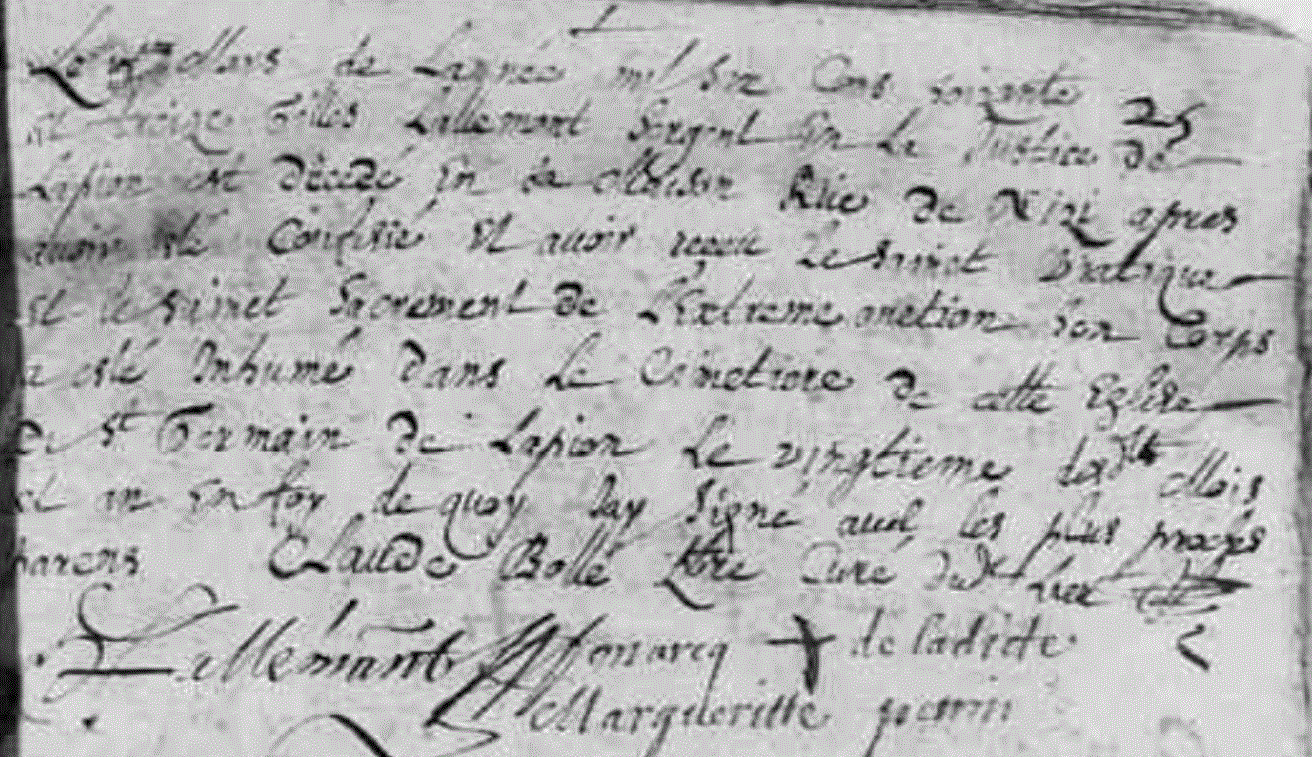 Le Mars de Lannée mil six Cens soixante
et treize Gilles Lallemant Sergent En La Justice de
Lapion est décédé En sa Maison Rüe de apres
avoir esté Confessé Et avoir receu Le sainct Viatique
Et le sainct Sacrement de L'Extreme onction Son Corps
a esté Inhumé dans Le Cimetiere de cette Eglise
de St Germain de Lapion Le vingtieme desdts Mois
et an En foy de quoy Jay Signé avec les plus proches
parens Claude Bollé Ptre Curé dudt Lieu
Lallemant marcq de ladicte
Margueritte